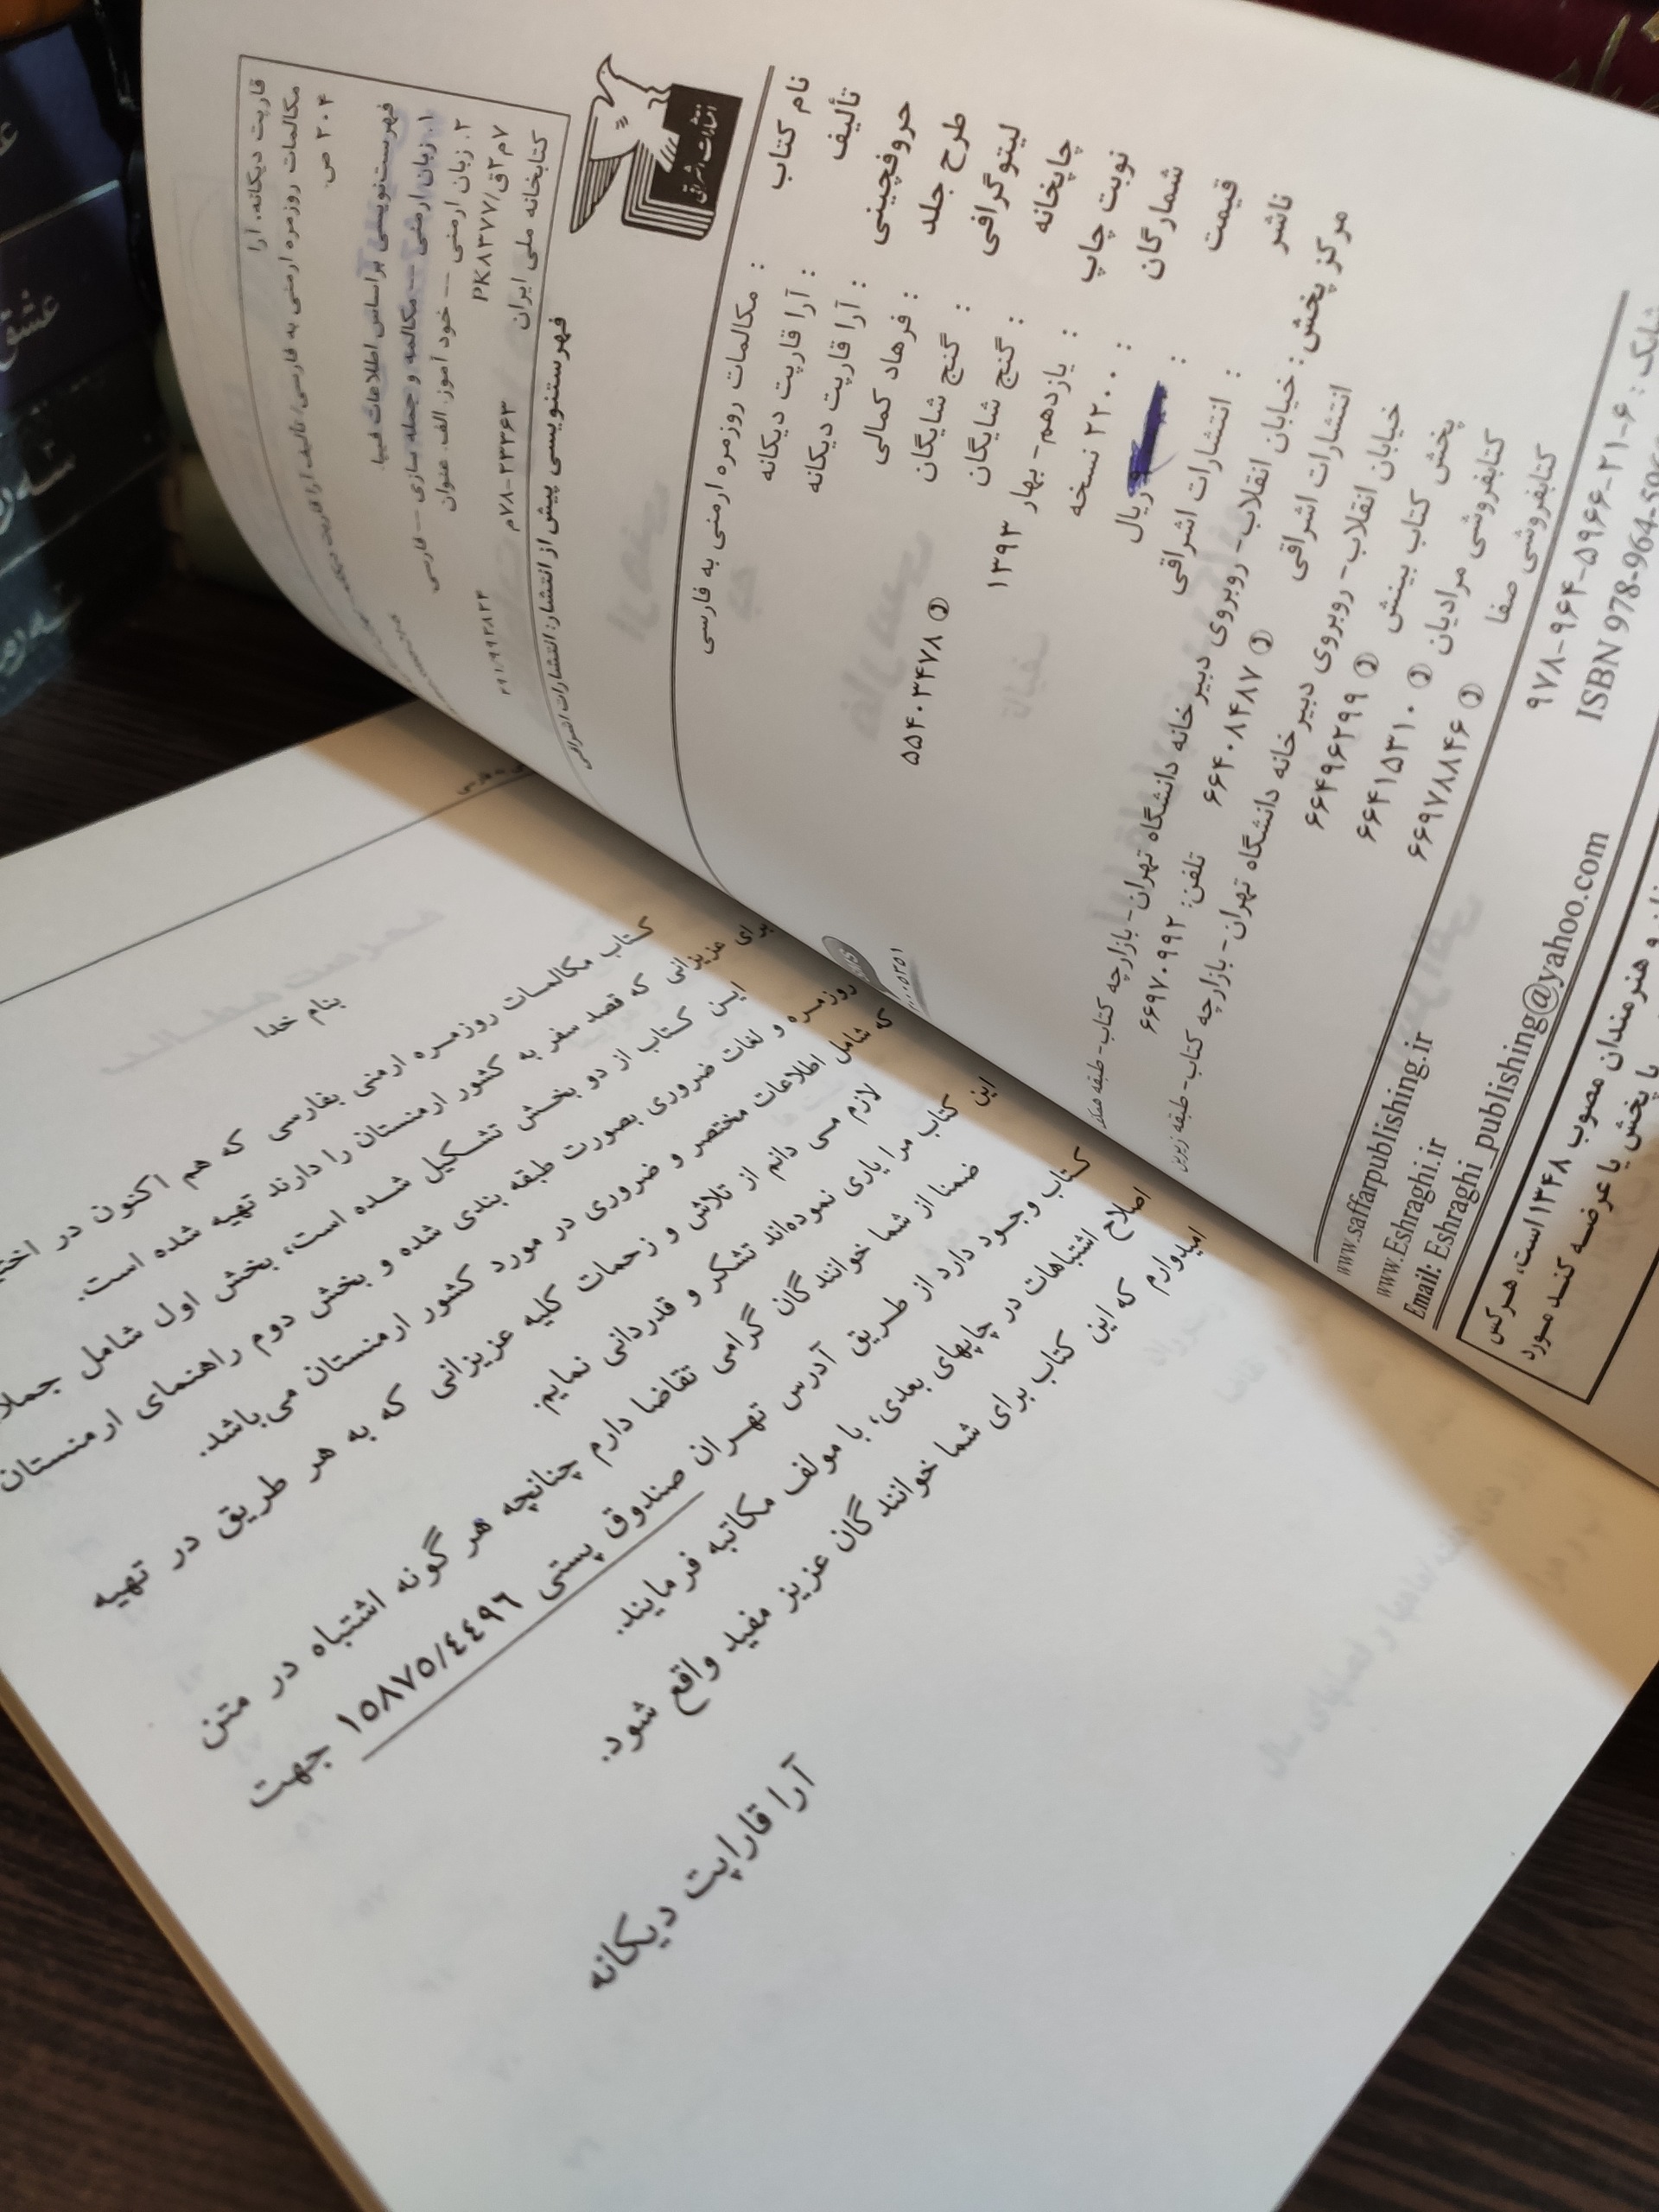 قاریت دیکانه، آرا
مکالمات روزمره ارمنی به فارسی/تألیف آرا قاریت
۲۰۴ ص.
فهرست‌نویسی براساس اطلاعات فیپا.
۱. زبان ارمنی -- مکالمه و جمله سازی -- فارسی
۲. زبان ارمنی -- خود آموز. الف. عنوان
۷م۲ق/PK۸۳۷۷
کتابخانه ملی ایران
۷۸-۲۳۳۶۳م
فهرستنویسی پیش از انتشار: انتشارات اشراقی
انتشارات اشراقی
نام کتاب : مکالمات روزمره ارمنی به فارسی
تألیف : آرا قاریت دیکانه
حروفچینی : آرا قاریت دیکانه
طرح جلد : فرهاد کمالی
لیتوگرافی : گنج شایگان ۵۵۴۰۳۴۷۸
چاپخانه : گنج شایگان
نوبت چاپ : یازدهم- بهار ۱۳۹۳
شمارگان : ۲۲۰۰ نسخه
قیمت : ریال
ناشر : انتشارات اشراقی
مرکز پخش : خیابان انقلاب- روبروی دبیر خانه دانشگاه تهران- بازارچه کتاب- طبقه همکف
انتشارات اشراقی ۶۶۴۰۸۴۸۷ تلفن: ۶۶۹۷۰۹۹۲
خیابان انقلاب- روبروی دبیر خانه دانشگاه تهران- بازارچه کتاب- طبقه زیرین
پخش کتاب بینش ۶۶۴۹۶۲۹۹
کتابفروشی مرادیان ۶۶۴۱۵۳۱۰
کتابفروشی صفا ۶۶۹۷۸۸۴۶
شابک : ۹۷۸-۹۶۴-۵۹۶۶-۲۱-۶
ISBN 978-964-
www.saffarpublishing.ir
www.Eshraghi.ir
Email: Eshraghi_publishing@yahoo.com
و هنرمندان مصوب ۱۳۴۸ است، هرکس
یا پخش یا عرضه کند مورد
بنام خدا
کتاب مکالمات روزمره ارمنی بفارسی که هم اکنون در
برای عزیزانی که قصد سفر به کشور ارمنستان را دارند تهیه شده است.
این کتاب از دو بخش تشکیل شده است، بخش اول شامل
روزمره و لغات ضروری بصورت طبقه بندی شده و بخش دوم راهنمای ارمنستان
که شامل اطلاعات مختصر و ضروری در مورد کشور ارمنستان می‌باشد.
لازم می دانم از تلاش و زحمات کلیه عزیزانی که به هر طریق در تهیه
این کتاب مرا یاری نموده‌اند تشکر و قدردانی نمایم.
ضمنا از شما خوانندگان گرامی تقاضا دارم چنانچه هر گونه اشتباه در متن
کتاب وجود دارد از طریق آدرس تهران صندوق پستی ١٥٨٧٥/٤٤٩٦ جهت
اصلاح اشتباهات در چاپهای بعدی، با مولف مکاتبه فرمایند.
امیدوارم که این کتاب برای شما خوانندگان عزیز مفید واقع شود.
آرا قاراپت دیکانه